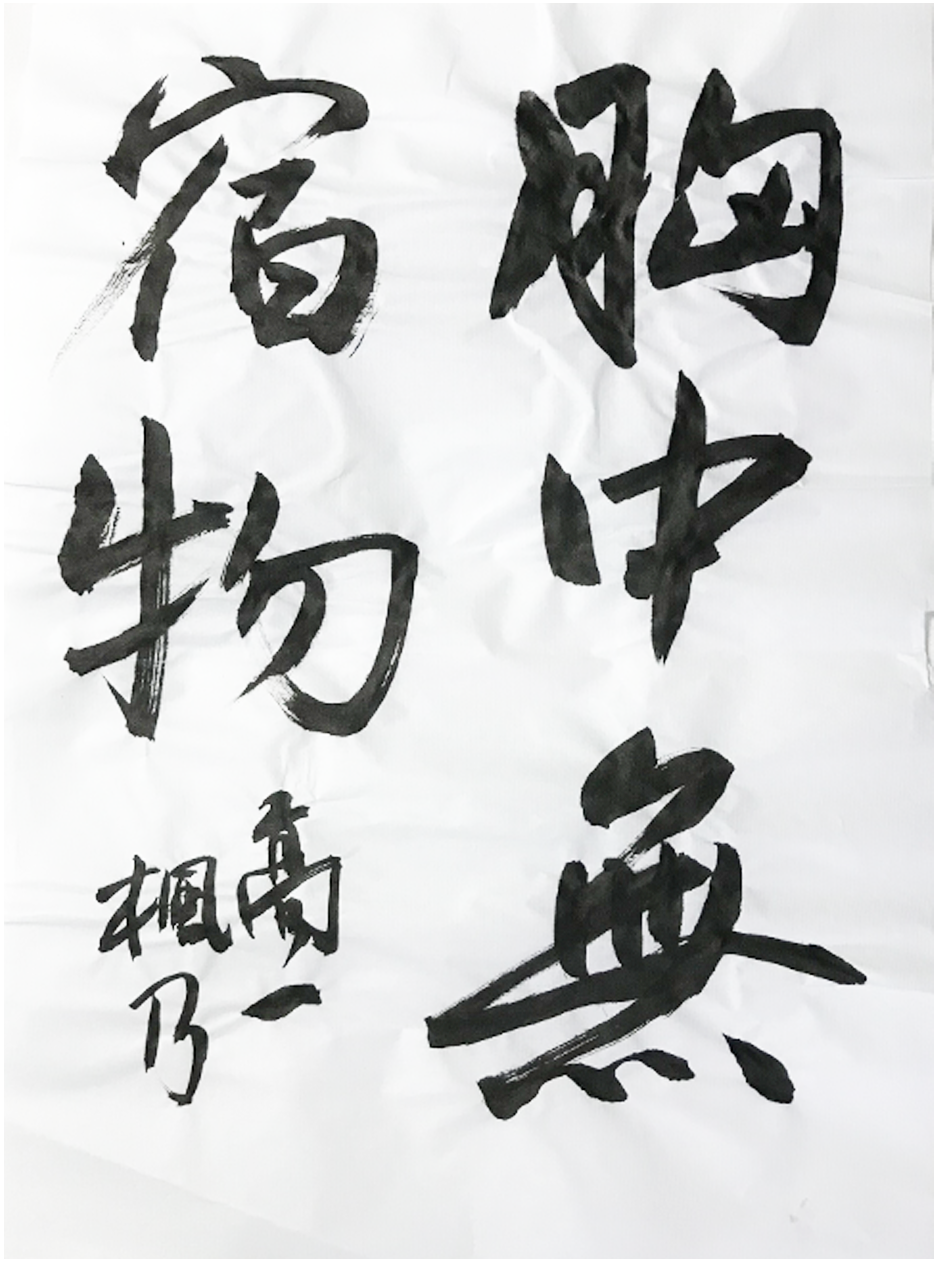 胸中無
宿物
高一
楓乃